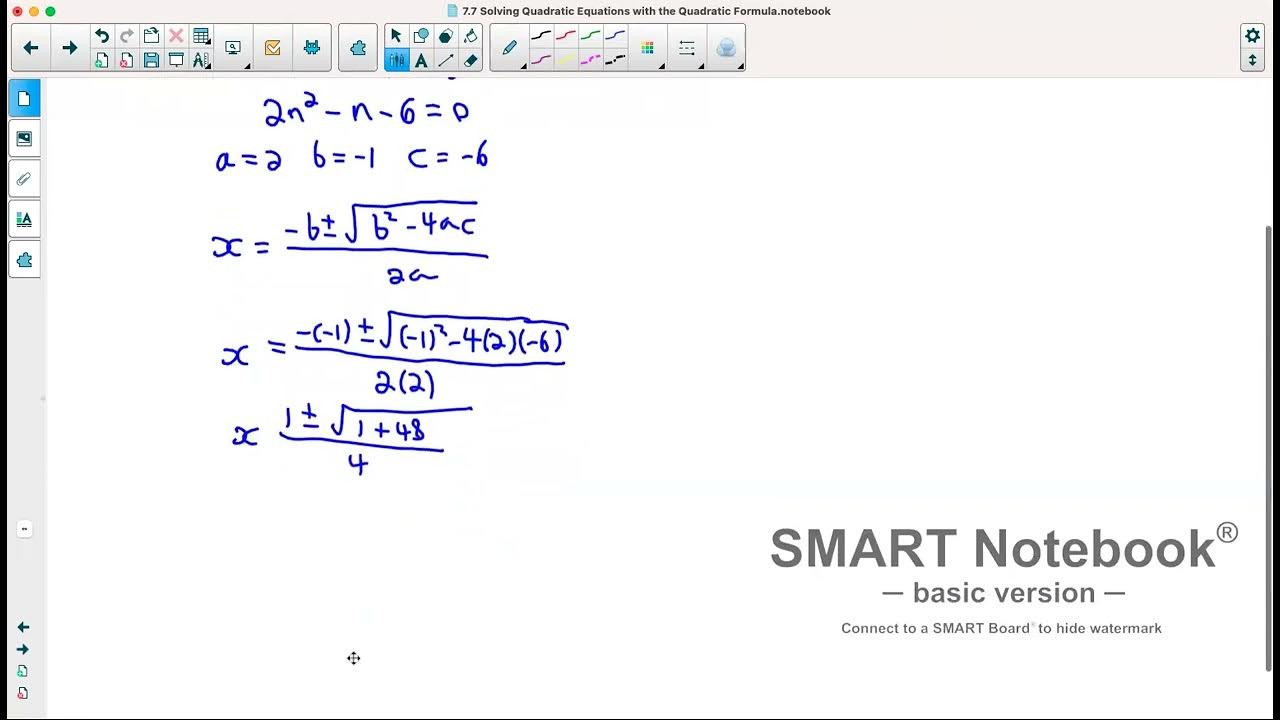 7.7 Solving Quadratic Equations with the Quadratic Formula.notebook
2n² - n - 6 = 0
a = 2 b = -1 c = -6
x = (-b ± √(b² - 4ac)) / 2a
x = (-(-1) ± √((-1)² - 4(2)(-6))) / 2(2)
x (1 ± √(1 + 48)) / 4
SMART Notebook®
— basic version —
Connect to a SMART Board® to hide watermark